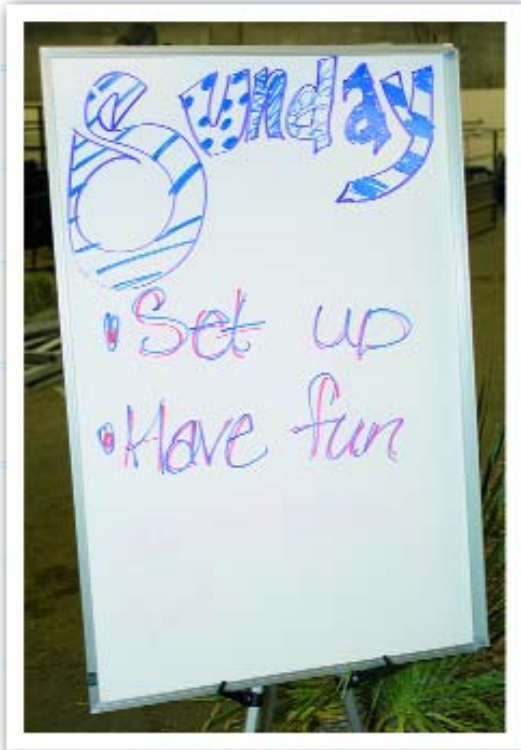 Sunday
• Set up
• Have fun